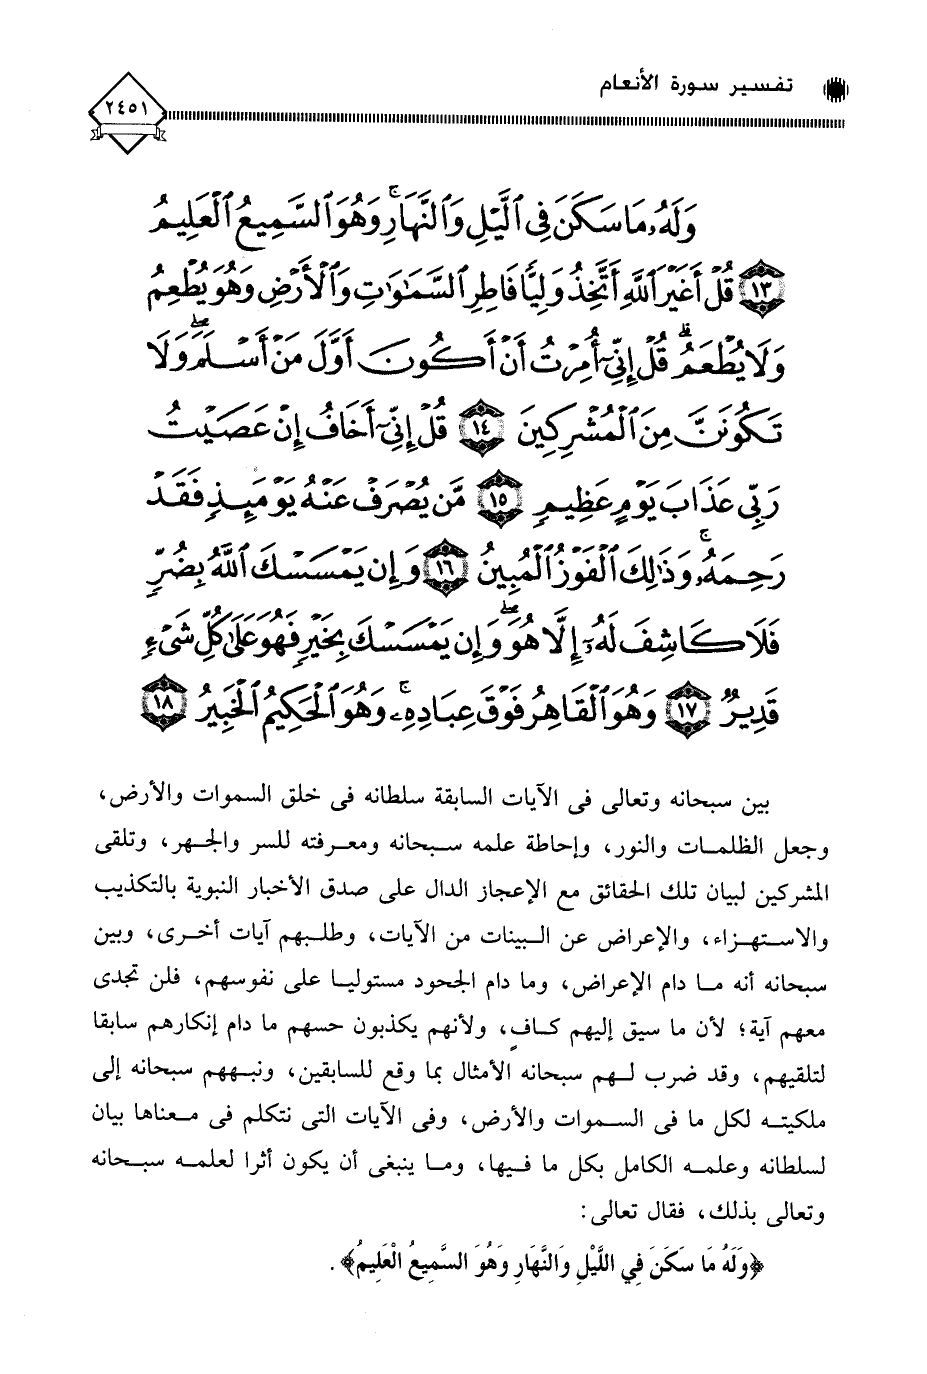 تفسير سورة الأنعام
٢٤٥١
وَلَهُۥ مَا سَكَنَ فِى ٱلَّيْلِ وَٱلنَّهَارِ ۚ وَهُوَ ٱلسَّمِيعُ ٱلْعَلِيمُ
١٣ قُلْ أَغَيْرَ ٱللَّهِ أَتَّخِذُ وَلِيًّا فَاطِرِ ٱلسَّمَٰوَٰتِ وَٱلْأَرْضِ وَهُوَ يُطْعِمُ
وَلَا يُطْعَمُ ۗ قُلْ إِنِّىٓ أُمِرْتُ أَنْ أَكُونَ أَوَّلَ مَنْ أَسْلَمَ ۖ وَلَا
تَكُونَنَّ مِنَ ٱلْمُشْرِكِينَ ١٤ قُلْ إِنِّىٓ أَخَافُ إِنْ عَصَيْتُ
رَبِّى عَذَابَ يَوْمٍ عَظِيمٍ ١٥ مَّن يُصْرَفْ عَنْهُ يَوْمَئِذٍ فَقَدْ
رَحِمَهُۥ ۚ وَذَٰلِكَ ٱلْفَوْزُ ٱلْمُبِينُ ١٦ وَإِن يَمْسَسْكَ ٱللَّهُ بِضُرٍّ
فَلَا كَاشِفَ لَهُۥٓ إِلَّا هُوَ ۖ وَإِن يَمْسَسْكَ بِخَيْرٍ فَهُوَ عَلَىٰ كُلِّ شَىْءٍ
قَدِيرٌ ١٧ وَهُوَ ٱلْقَاهِرُ فَوْقَ عِبَادِهِۦ ۚ وَهُوَ ٱلْحَكِيمُ ٱلْخَبِيرُ ١٨
بين سبحانه وتعالى فى الآيات السابقة سلطانه فى خلق السموات والأرض،
وجعل الظلمات والنور، وإحاطة علمه سبحانه ومعرفته للسر والجهر، وتلقى
المشركين لبيان تلك الحقائق مع الإعجاز الدال على صدق الأخبار النبوية بالتكذيب
والاستهزاء، والإعراض عن البينات من الآيات، وطلبهم آيات أخرى، وبين
سبحانه أنه ما دام الإعراض، وما دام الجحود مستوليا على نفوسهم، فلن تجدى
معهم آية؛ لأن ما سيق إليهم كافٍ، ولأنهم يكذبون حسهم ما دام إنكارهم سابقا
لتلقيهم، وقد ضرب لهم سبحانه الأمثال بما وقع للسابقين، ونبههم سبحانه إلى
ملكيته لكل ما فى السموات والأرض، وفى الآيات التى نتكلم فى معناها بيان
لسلطانه وعلمه الكامل بكل ما فيها، وما ينبغى أن يكون أثرا لعلمه سبحانه
وتعالى بذلك، فقال تعالى:
﴿وَلَهُ مَا سَكَنَ فِي اللَّيْلِ وَالنَّهَارِ وَهُوَ السَّمِيعُ الْعَلِيمُ﴾.